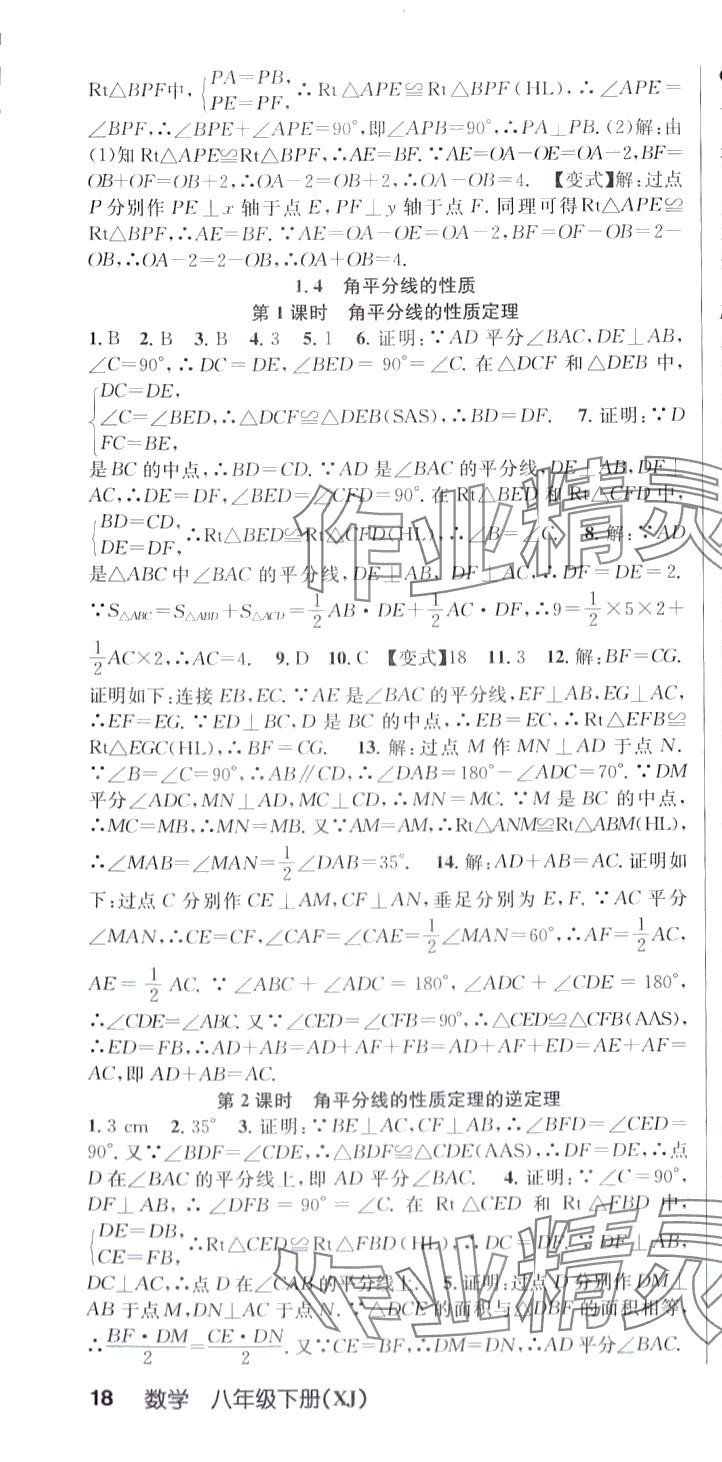 Rt△BPF中,{PA=PB, PE=PF, ∴Rt△APE≌Rt△BPF(HL),∴∠APE=
∠BPF,∴∠BPE+∠APE=90°,即∠APB=90°,∴PA⊥PB.(2)解:由
(1)知Rt△APE≌Rt△BPF,∴AE=BF.∵AE=OA-OE=OA-2,BF=
OB+OF=OB+2,∴OA-2=OB+2,∴OA-OB=4. 【变式】解:过点
P分别作PE⊥x轴于点E,PF⊥y轴于点F.同理可得Rt△APE≌
Rt△BPF,∴AE=BF.∵AE=OA-OE=OA-2,BF=OF-OB=2-
OB,∴OA-2=2-OB,∴OA+OB=4.
1.4 角平分线的性质
第1课时 角平分线的性质定理
1.B 2.B 3.B 4.3 5.1 6.证明:∵AD平分∠BAC,DE⊥AB,
∠C=90°,∴DC=DE,∠BED=90°=∠C.在△DCF和△DEB中,
{DC=DE, ∠C=∠BED, FC=BE, ∴△DCF≌△DEB(SAS),∴BD=DF. 7.证明:∵D
是BC的中点,∴BD=CD.∵AD是∠BAC的平分线,DE⊥AB,DF⊥
AC,∴DE=DF,∠BED=∠CFD=90°.在Rt△BED和Rt△CFD中,
{BD=CD, DE=DF, ∴Rt△BED≌Rt△CFD(HL),∴∠B=∠C. 8.解:∵AD
是△ABC中∠BAC的平分线,DE⊥AB,DF⊥AC,∴DF=DE=2.
∵S△ABC=S△ABD+S△ACD=1/2AB·DE+1/2AC·DF,∴9=1/2×5×2+
1/2AC×2,∴AC=4. 9.D 10.C 【变式】18 11.3 12.解:BF=CG.
证明如下:连接EB,EC.∵AE是∠BAC的平分线,EF⊥AB,EG⊥AC,
∴EF=EG.∵ED⊥BC,D是BC的中点,∴EB=EC,∴Rt△EFB≌
Rt△EGC(HL),∴BF=CG. 13.解:过点M作MN⊥AD于点N.
∵∠B=∠C=90°,∴AB∥CD,∴∠DAB=180°-∠ADC=70°.∵DM
平分∠ADC,MN⊥AD,MC⊥CD,∴MN=MC.∵M是BC的中点,
∴MC=MB,∴MN=MB.又∵AM=AM,∴Rt△ANM≌Rt△ABM(HL),
∴∠MAB=∠MAN=1/2∠DAB=35°. 14.解:AD+AB=AC.证明如
下:过点C分别作CE⊥AM,CF⊥AN,垂足分别为E,F.∵AC平分
∠MAN,∴CE=CF,∠CAF=∠CAE=1/2∠MAN=60°,∴AF=1/2AC,
AE=1/2AC.∵∠ABC+∠ADC=180°,∠ADC+∠CDE=180°,
∴∠CDE=∠ABC.又∵∠CED=∠CFB=90°,∴△CED≌△CFB(AAS),
∴ED=FB,∴AD+AB=AD+BF+AF=AD+ED+AF=AE+AF=
AC,即AD+AB=AC.
第2课时 角平分线的性质定理的逆定理
1.3 cm 2.35° 3.证明:∵BE⊥AC,CF⊥AB,∴∠BFD=∠CED=
90°.又∵∠BDF=∠CDE,∴△BDF≌△CDE(AAS),∴DF=DE,∴点
D在∠BAC的平分线上,即AD平分∠BAC. 4.证明:∵∠C=90°,
DF⊥AB,∴∠DFB=90°=∠C.在Rt△CED和Rt△FBD中,
{DE=DB, CE=FB, ∴Rt△CED≌Rt△FBD(HL),∴DC=DF.又∵DF⊥AB,
DC⊥AC,∴点D在∠CAB的平分线上. 5.证明:过点D分别作DM⊥
AB于点M,DN⊥AC于点N.∵△DCE的面积与△DBF的面积相等,
∴BF·DM/2=CE·DN/2.又∵CE=BF,∴DM=DN,∴AD平分∠BAC.
18 数学 八年级下册(XJ)
作业精灵
作业精灵